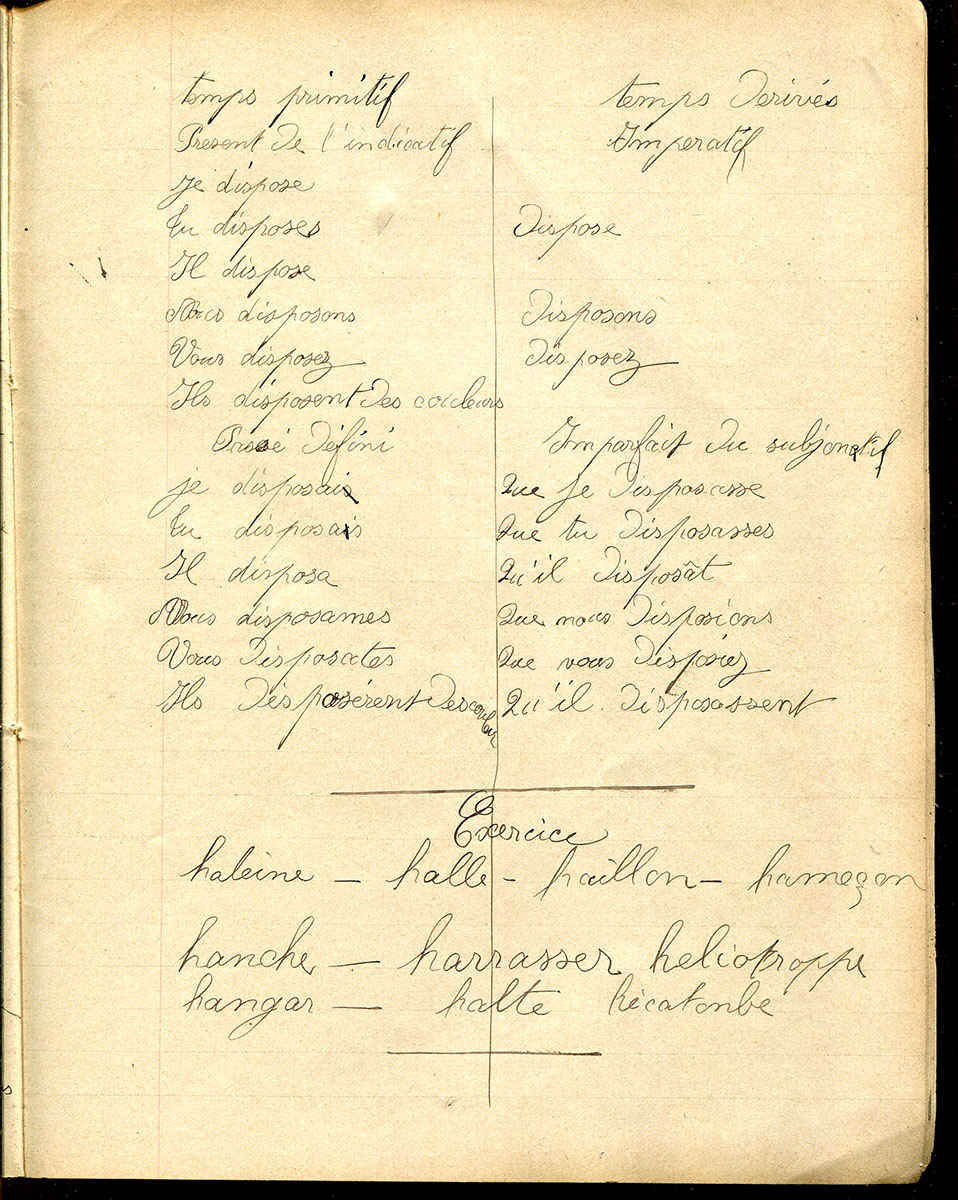 temps primitif temps Derivés
Present De l'indicatif Imperatif
Je dispose
tu disposes Dispose
Il dispose
Nous disposons Disposons
Vous disposez Disposez
Ils disposent Des couleurs
Passé Défini Imparfait Du subjonctif
je disposais Que je Disposasse
tu disposais Que tu Disposasses
Il disposa Qu'il Disposât
Nous disposames Que nous Disposions
Vous Disposates Que vous Disposiez
Ils Disposérent Des couleur Qu'il Disposassent
Exercice
haleine — halle - haillon - hameçon
hanche — harrasser heliotroppe
hangar — halte hécatonbe